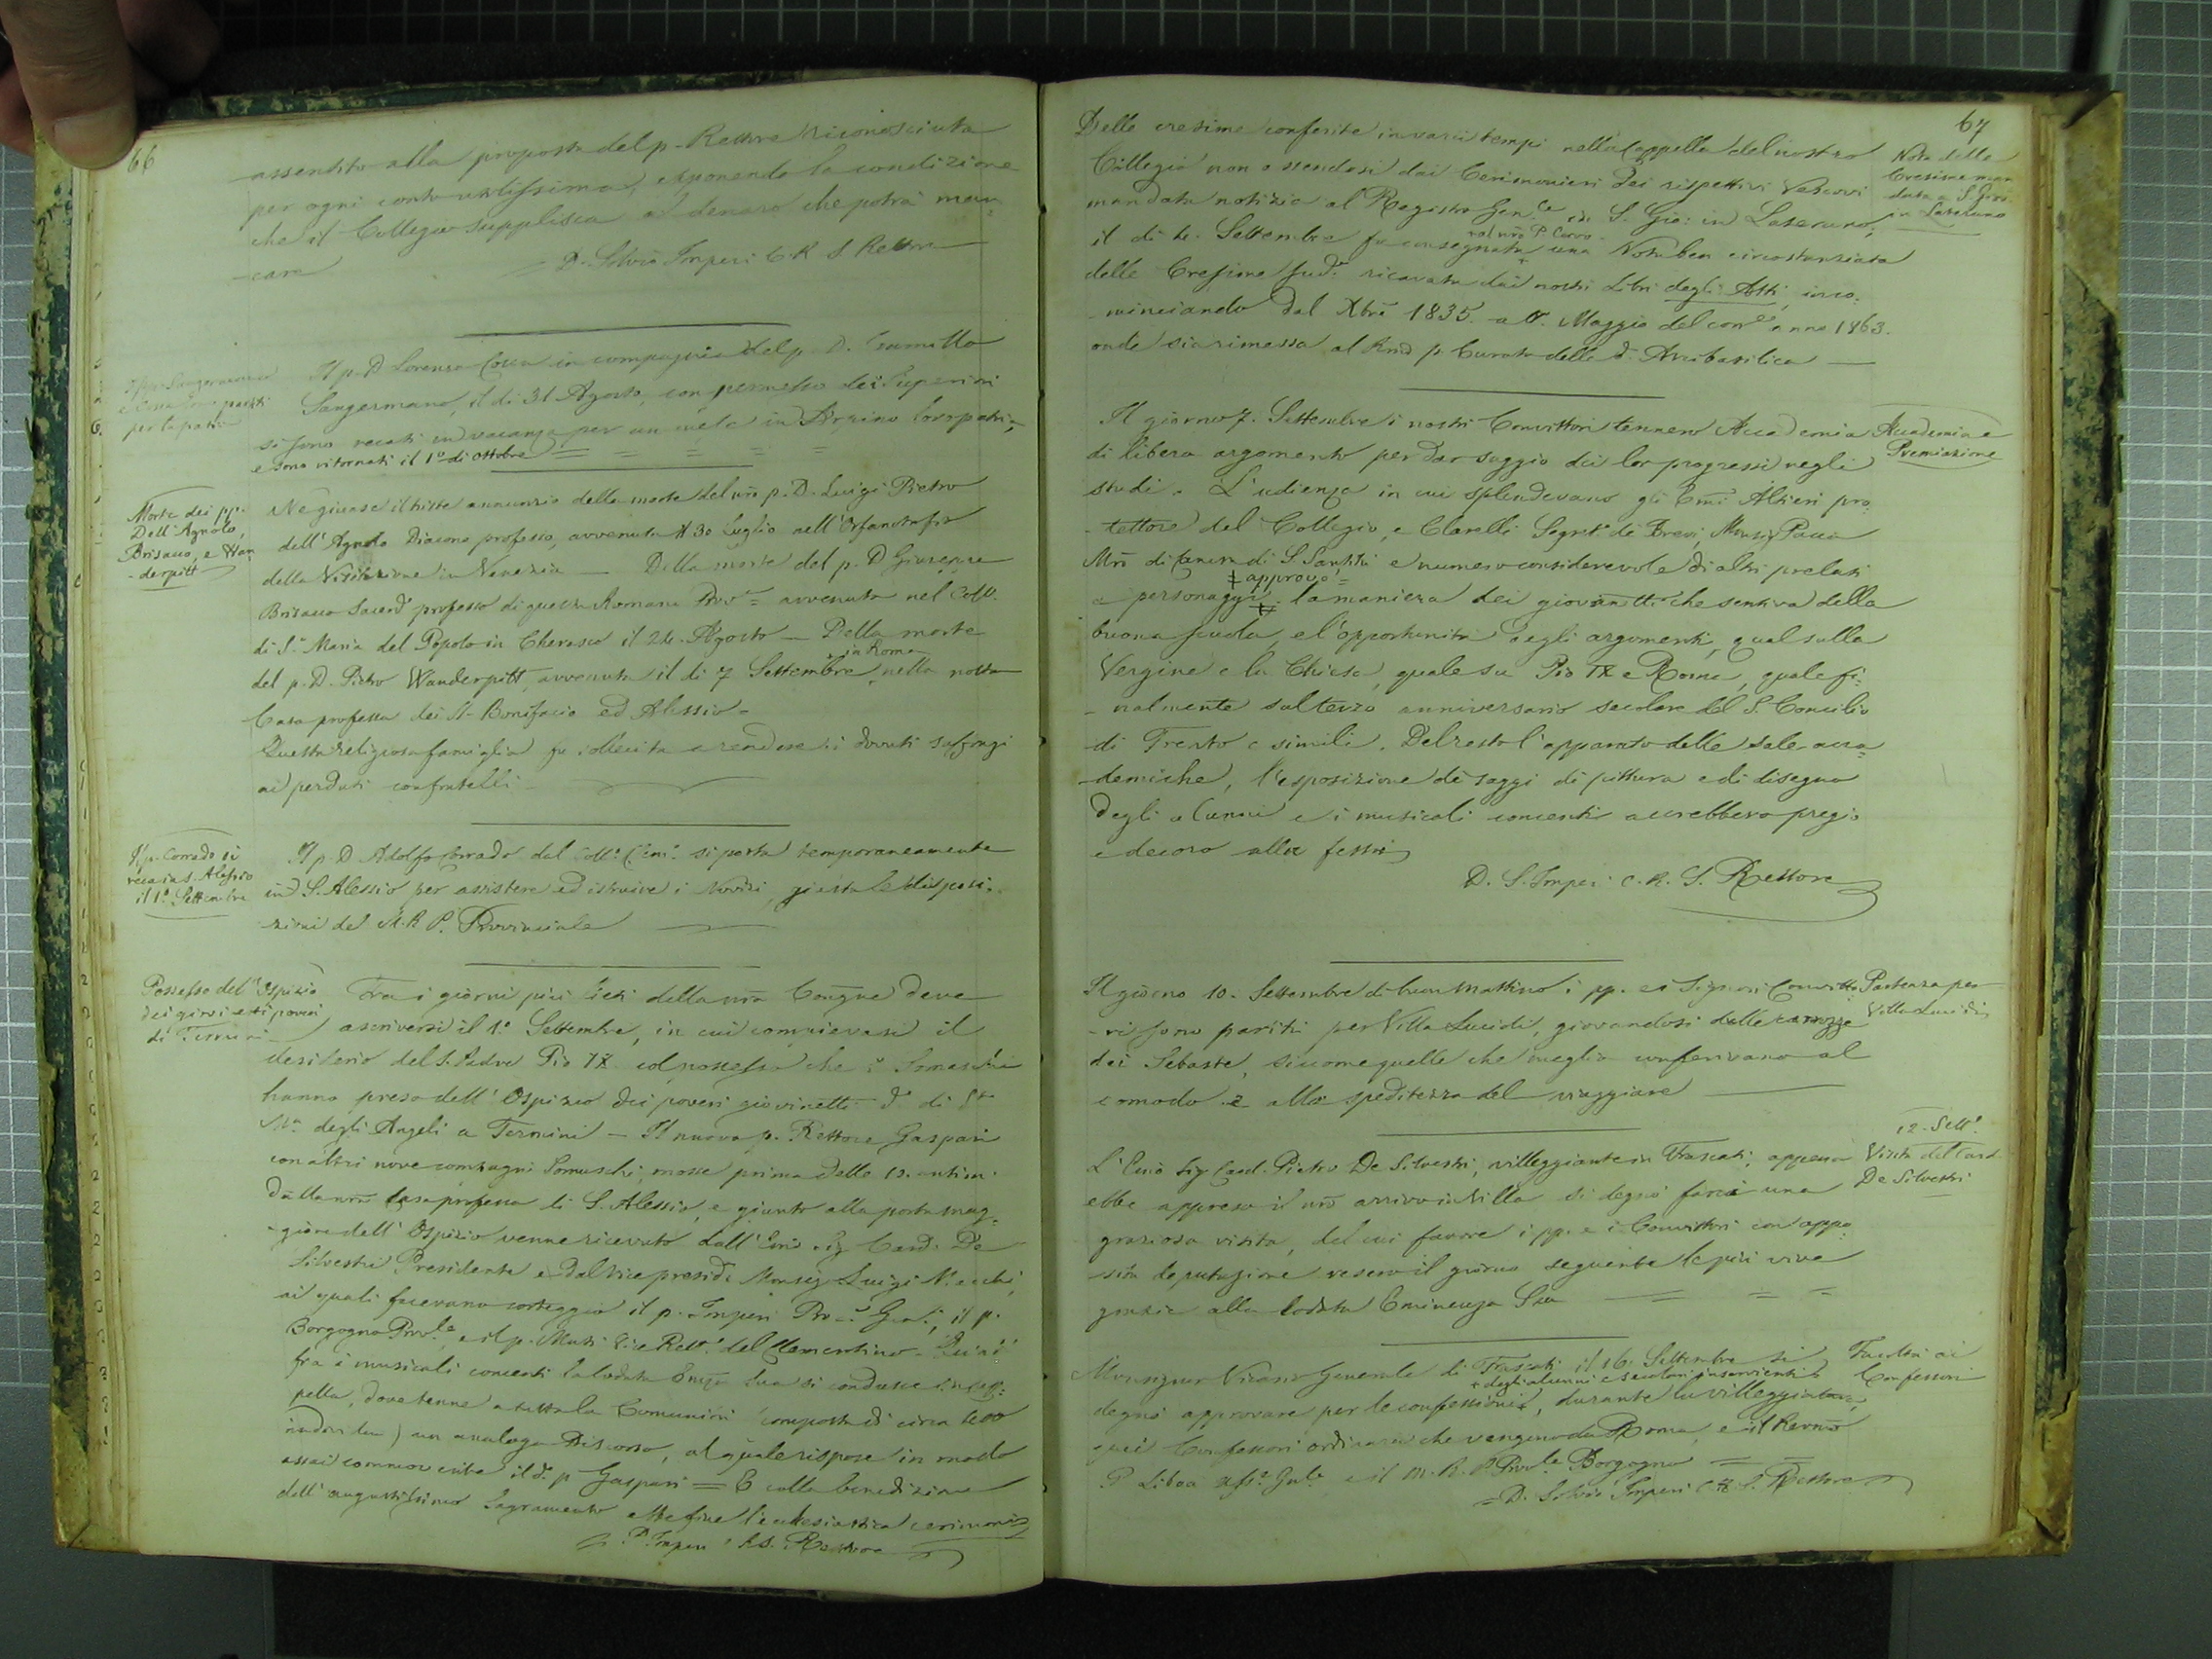 66
assentito alla proposta del p. Rettore riconosciuta
per ogni conto utilissima, esponendo la condizione
che il Collegio supplisca al denaro che potrà man-
-care
= D. Silvio Imperi C. R. S. Rettore
I pp. Sangermano
e Cossa sono partiti
per la patria
Il p. D. Lorenzo Cossa in compagnia del p. D. Camillo
Sangermano, il dì 31 Agosto, con permesso dei Superiori
si sono recati in vacanza per un mese in Arpino loro patria,
e sono ritornati il 1º di Ottobre = = = = =
Morte dei pp.
Dell'Agnolo,
Brisacco, e Wan
-derpitt
Ne giunse il triste annunzio della morte del nrō p. D. Luigi Pietro
dell'Agnolo Diacono professo, avvenuta il 30 Luglio nell'Orfanotrofio
della Visitazione in Venezia — Della morte del p. D. Giuseppe
Brisacco Sacerd. professo di questa Romana Prov.ª = avvenuta nel Coll.
di S.ª Maria del Popolo in Cherasco il 24. Agosto — Della morte
in Roma
del p. D. Pietro Wanderpitt, avvenuta il dì 7 Settembre, nella nostra
Casa professa dei SS. Bonifacio ed Alessio.
Questa religiosa famiglia fu sollecita a rendere i dovuti suffragi
ai perduti confratelli
Il p. Corrado si
reca in S. Alessio
il 1º Settembre
Il p. D. Adolfo Corrado del Coll.º Clem.º si porta temporaneamente
in S. Alessio per assistere ed istruire i Novizi, giusta le disposi-
-zioni del M. R. P. Provinciale
Possesso dell'Ospizio
dei giovinetti poveri
di Termini
Fra i giorni più lieti della nrā Congne deve
ascriversi il 1º Settembre, in cui compievasi il
desiderio del S. Padre Pio IX col possesso che i Somaschi
hanno preso dell'Ospizio dei poveri giovinetti dº di S.ta
M.ª degli Angeli a Termini — Il nuovo p. Rettore Gaspari
con altri nove compagni Somaschi, mosse prima delle 12. antim.
dalla nrā Casa professa di S. Alessio, e giunto alla porta mag-
-giore dell'Ospizio venne ricevuto dall'Emō Sig. Card. De
Silvestri Presidente e dal Vice presid.e Monsig. Luigi
ai quali facevano corteggio il p. Imperi Proc. Gen.; il p.
Borgogno Prov.le e il p. Muti Vice Rett.e del Clementino. Quindi
fra i musicali concenti la lodata Emza Sua si condusse in Cap-
pella, dove tenne a tutta la Comunità (composta di circa
individui) un analogo Discorso, al quale rispose in modo
assai commovente il d.º p. Gaspari = E colla benedizione
dell'augustissimo Sagramento ebbe fine l'ecclesiastica cerimonia
= D. Imperi C. R. S. Rettore
67
Nota delle
Cresime man
data a S. Giov.
in Laterano
Delle cresime conferite in varii tempi nella Cappella del nostro
Collegio non essendosi dai Cerimonieri dei rispettivi Vescovi
mandata notizia al Registro Gen.le in S. Gio: in Laterano,
+ al nrō P. Corvo
il dì 4. Settembre fu consegnata + una Nota ben circostanziata
delle Cresime sud.e ricavata dai nostri Libri degli Atti, inco-
-minciando dal Xbre 1835. a tt.º Maggio del corr.e anno 1863.
onde sia rimessa al Rnd p. Curato della d.ª Arcibasilica —
Accademia e
Premiazione
Il giorno 7. Settembre i nostri Convittori tennero Accademia
di libero argomento per dar saggio dei lor progressi negli
studi. L'udienza in cui splendevano gli Emī Altieri pro-
-tettore del Collegio, e Clarelli Segret.º de' Brevi, Monsig. Pacca
Mrō di Camera di S. Santità e numero considerevole di altri prelati
‡ approvò =
e personaggi ‡ la maniera dei giovanetti che sentiva della
buona scuola, e l'opportunità degli argomenti, qual sulla
Vergine e la Chiesa, quale su Pio IX e Roma, quale fi-
-nalmente sul terzo anniversario secolare del S. Concilio
di Trento e simili. Del resto l'apparato delle sale acca-
-demiche, l'esposizione de' saggi di pittura e di disegno
degli alunni e i musicali concenti accrebbero pregio
e decoro alla festa
D. S. Imperi C. R. S. Rettore
Partenza per
Villa Lucidi
Il giorno 10. Settembre di buon mattino i pp. e i Signori Convitto-
-ri sono partiti per Villa Lucidi, giovandosi delle carrozze
dei Sebaste, siccome quelle che meglio conferivano al
comodo e alla speditezza del viaggiare
12. Sett.e
Visita del Card.
De Silvestri
L'Emō Sig. Card. Pietro De Silvestri, villeggiante in Frascati, appena
ebbe appreso il nrō arrivo in Villa si degnò farci una
graziosa visita, del cui favore i pp. e i Convittori con appo-
-sita deputazione resero il giorno seguente le più vive
grazie alla lodata Eminenza Sua = = =
Facoltà ai
Confessori
Monsignor Vicario Generale di Frascati il 16. Settembre si
+ degli alunni e secolari inservienti
degnò approvare per le confessioni +, durante la villeggiatura,
quei Confessori ordinarii che vengono da Roma, e il Revmō
P. Libois Ass.e Gnle. e il M. R. P. Prov.le Borgogno = =
= D. Silvio Imperi C. R. S. Rettore